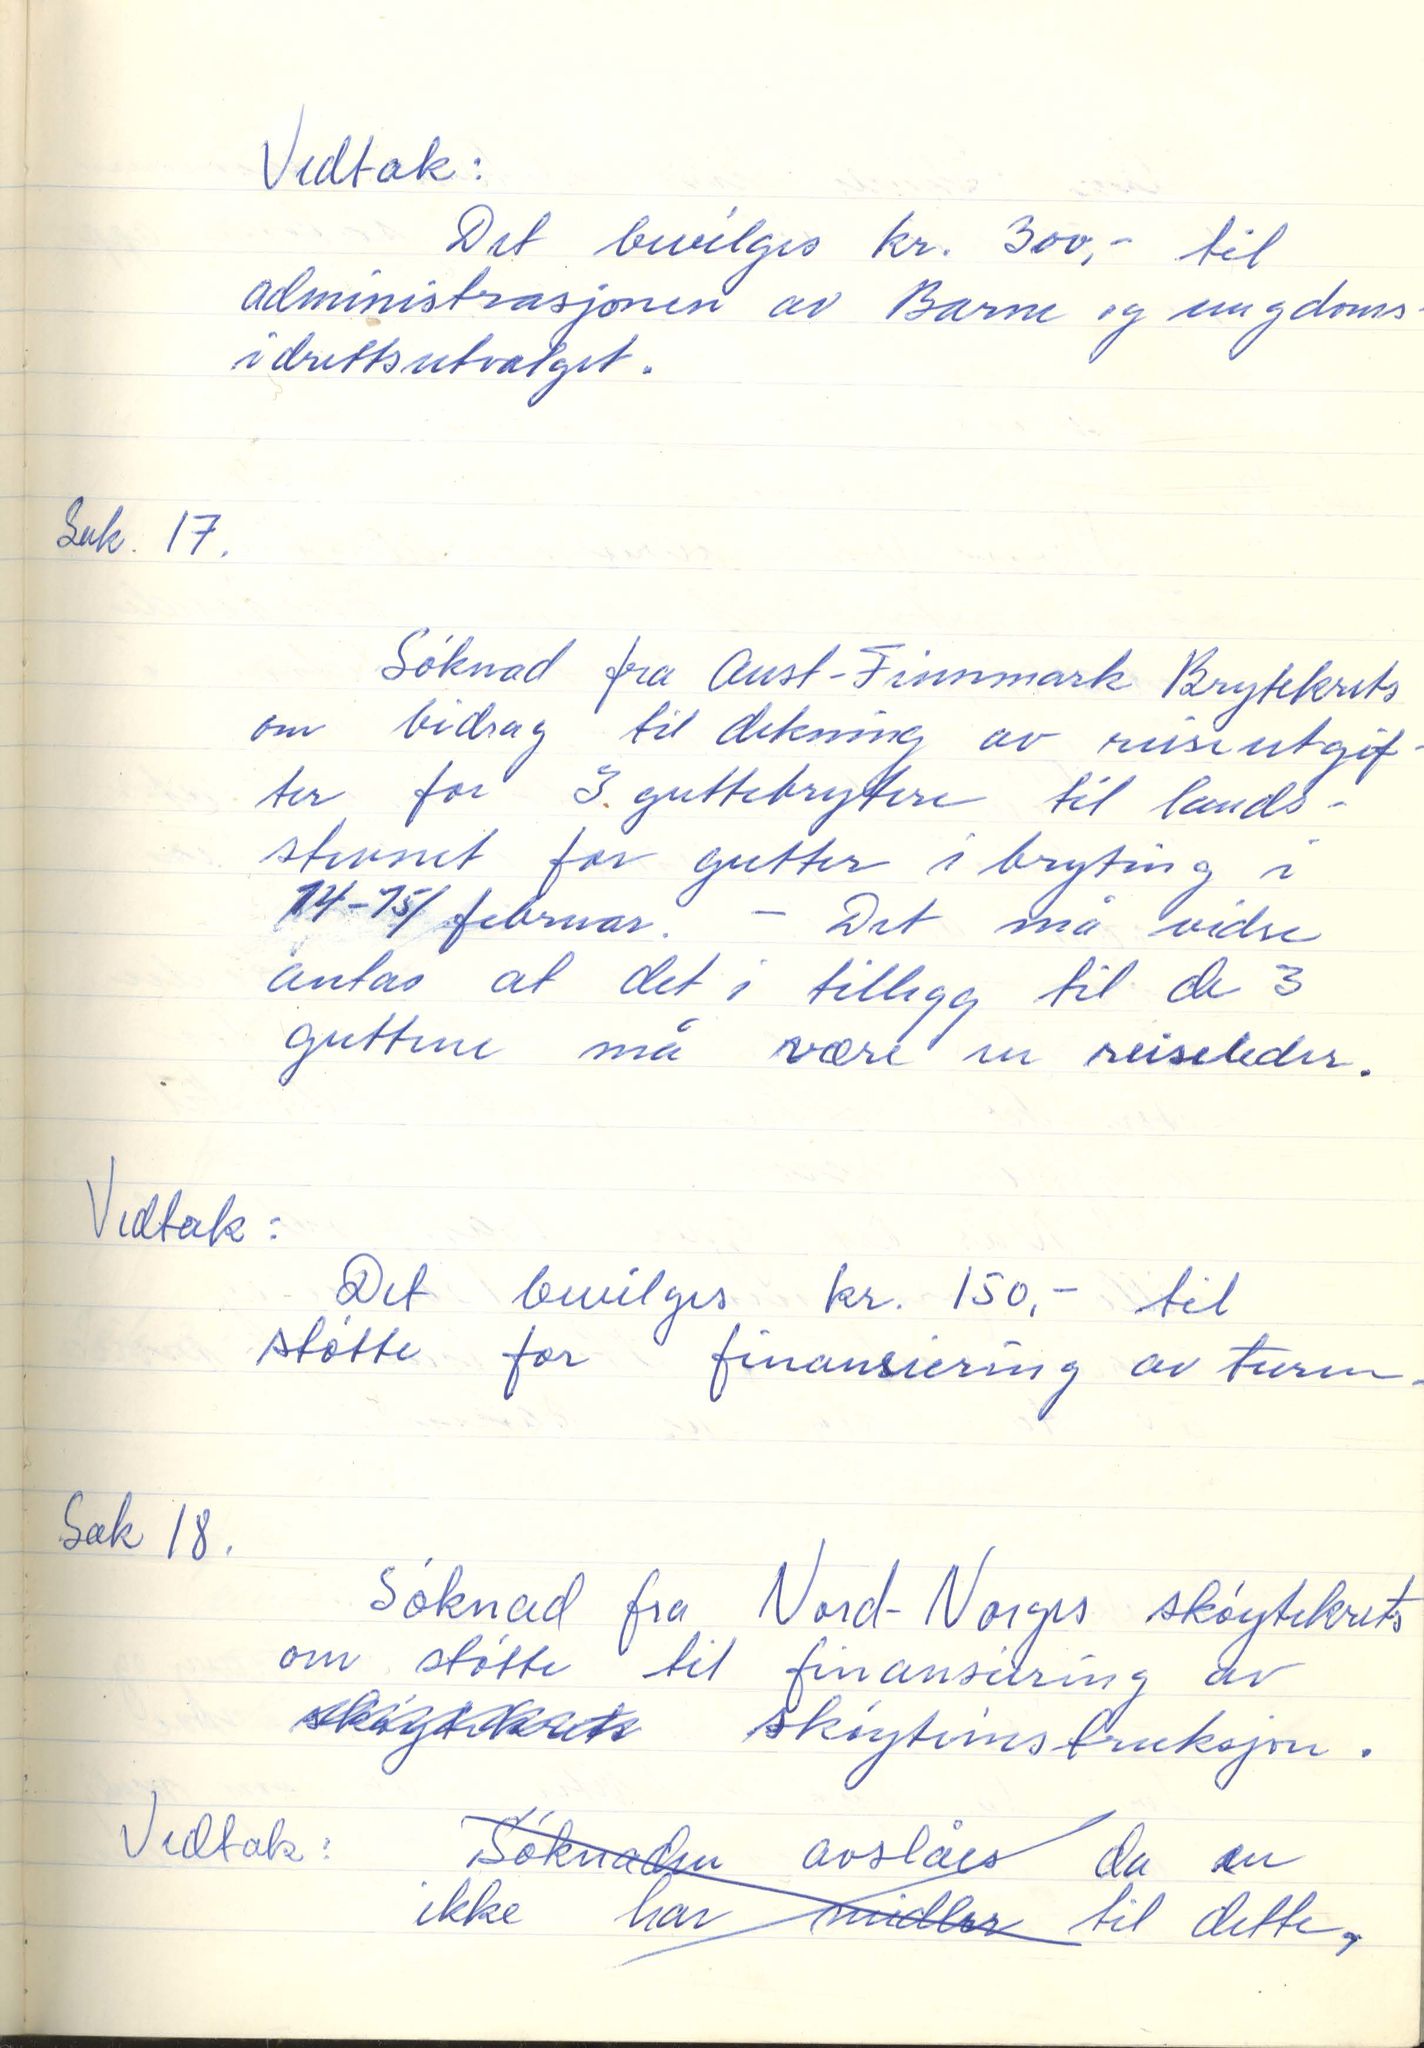 Vedtak:
Det bevilges kr. 300,- til
administrasjonen av Barne og ungdoms-
idrettsutvalget.
Sak. 17.
Søknad fra Aust-Finnmark Brytekrets
om bidrag til dekning av reiseutgif-
ter for 3 guttebrytere til lands-
stevnet for gutter i bryting i
14-15/ februar. - Det må vidre
antas at det i tillegg til de 3
guttene må være en reiseleder.
Vedtak:
Det bevilges kr. 150,- til
støtte for finansiering av turen.
Sak 18.
Søknad fra Nord-Norges skøytekrets
om støtte til finansiering av
skøytekrets skøyteinstruksjon.
Vedtak: Søknaden avslåes da en
ikke har midler til dette,